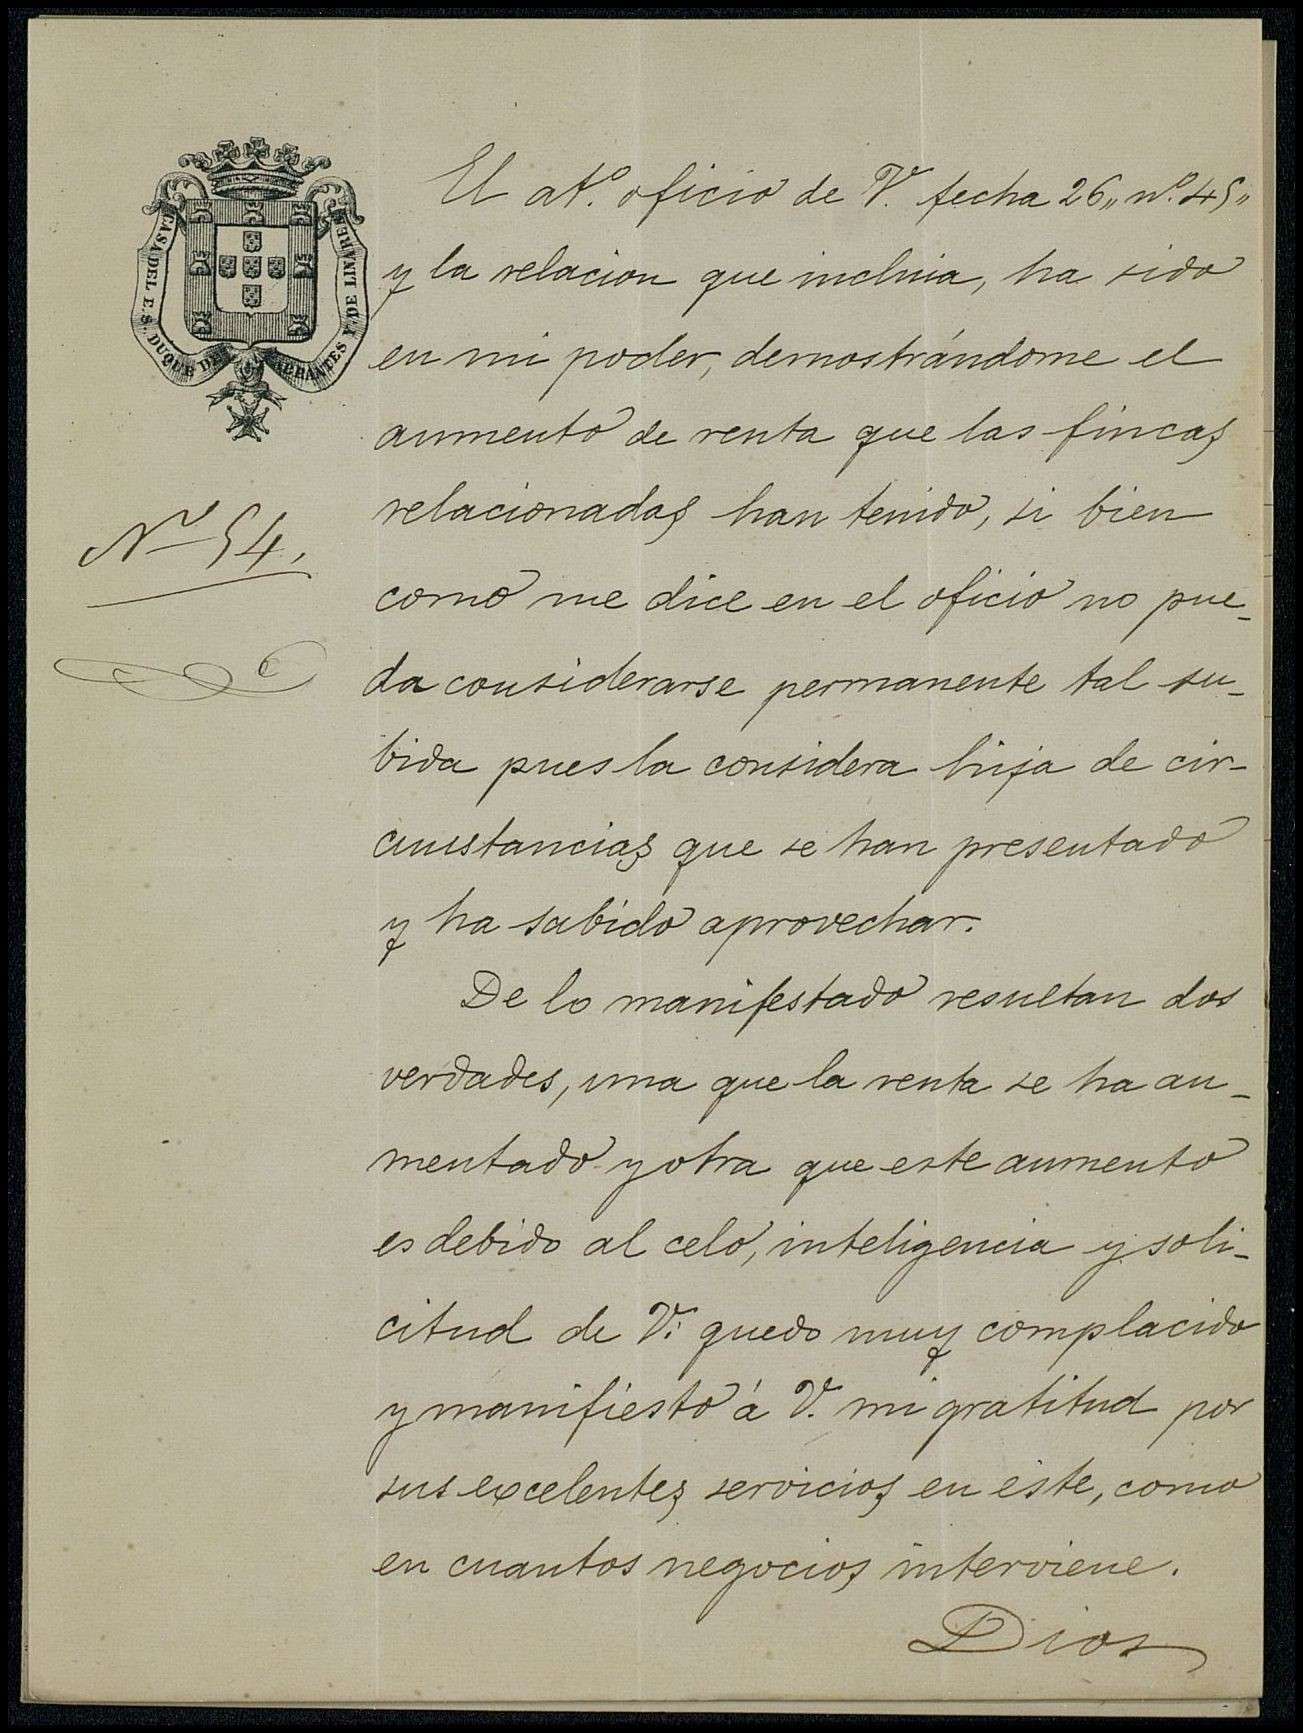 CASA DEL E.S. DUQUE DE ABRANTES Y DE LINARES
Nº 54.
El atº. oficio de V. fecha 26,, nº. 45,,
y la relacion que incluia, ha sido
en mi poder, demostrándome el
aumento de renta que las fincas
relacionadas han tenido, si bien
como me dice en el oficio no pue-
da considerarse permanente tal su-
bida pues la considera hija de cir-
cunstancias que se han presentado
y ha sabido aprovechar.
De lo manifestado resultan dos
verdades, una que la renta se ha au-
mentado y otra que este aumento
es debido al celo, inteligencia y soli-
citud de V. quedo muy complacido
y manifiesto á V. mi gratitud por
sus excelentes servicios en éste, como
en cuantos negocios interviene.
Dios